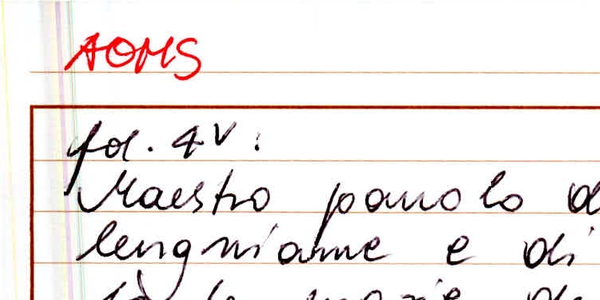 AOMS
fol. 4v:
Maestro panolo d
lengniame e di